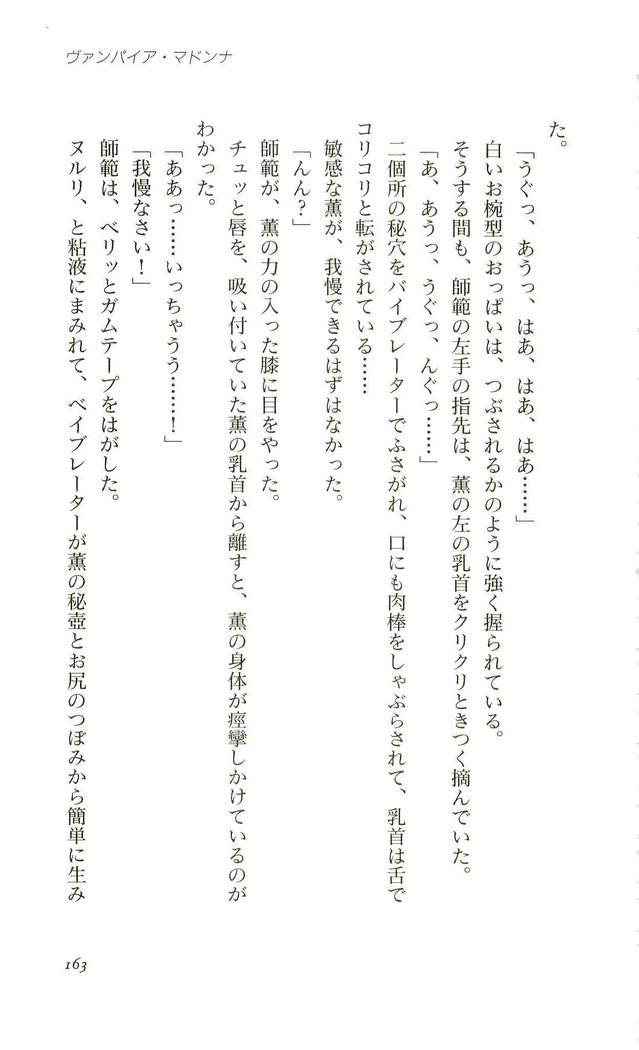 ヴァンパイア・マドンナ
た。
「うぐっ、あうっ、はあ、はあ、はあ……」
白いお椀型のおっぱいは、つぶされるかのように強く握られている。
そうする間も、師範の左手の指先は、薫の左の乳首をクリクリときつく摘んでいた。
「あ、あうっ、うぐっ、んぐっ……」
二個所の秘穴をバイブレーターでふさがれ、口にも肉棒をしゃぶらされて、乳首は舌で
コリコリと転がされている……
敏感な薫が、我慢できるはずはなかった。
「んん？」
師範が、薫の力の入った膝に目をやった。
チュッと唇を、吸い付いていた薫の乳首から離すと、薫の身体が痙攣しかけているのが
わかった。
「ああっ……いっちゃうう……！」
「我慢なさい！」
師範は、ベリッとガムテープをはがした。
ヌルリ、と粘液にまみれて、ベイブレーターが薫の秘壺とお尻のつぼみから簡単に生み
163